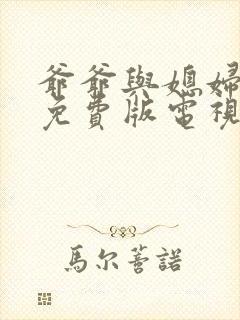 爺爺與媳婦
免費版電視
馬尔菩諾